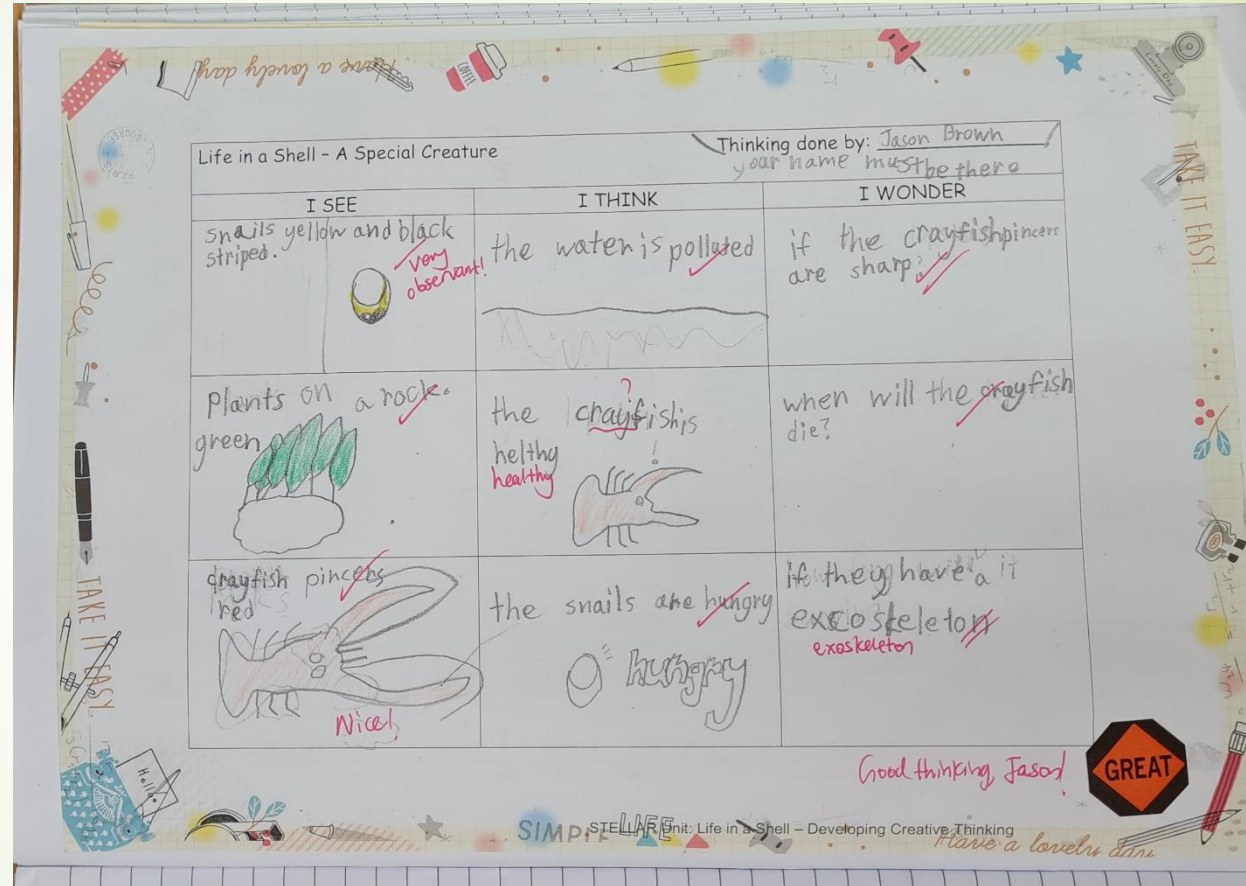 Have a lovely day
COFFEE
TAKE IT EASY.
Life in a Shell – A Special Creature
Thinking done by: Jason Brown
your name must be there
I SEE
I THINK
I WONDER
snails yellow and black
striped.
very
observant!
the water is polluted
if the crayfish pincers
are sharp?
Plants on a rock.
green
?
the crayfish is
helthy
healthy
!
when will the crayfish
die?
crayfish pincers
red
Nice!
the snails are hungry
hungry
if they have a it
excoskeleton
exoskeleton
Good thinking, Jason!
GREAT
TAKE IT EASY.
Hello.
SIMPLE LIFE
STELLAR Unit: Life in a Shell – Developing Creative Thinking
Have a lovely day